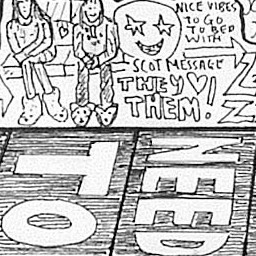 NICE VIBES
TO GO
TO BED
WITH
SCOT MESSAGE
THEY ♡
THEM!
NEED
TO